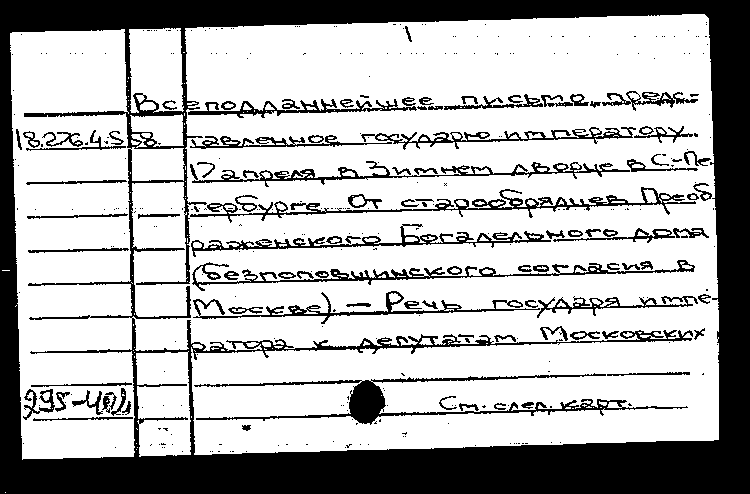 1
Всеподданнейшее письмо, предс-
18.276.4.558. тавленное государю императору
17 апреля, в Зимнем дворце в С-Пе
тербурге. От старообрядцев Преоб
раженского Богадельного дома
(безпоповщинского согласия в
Москве) – Речь государя импе-
ратора к депутатам Московских
295-402
См. след. карт.